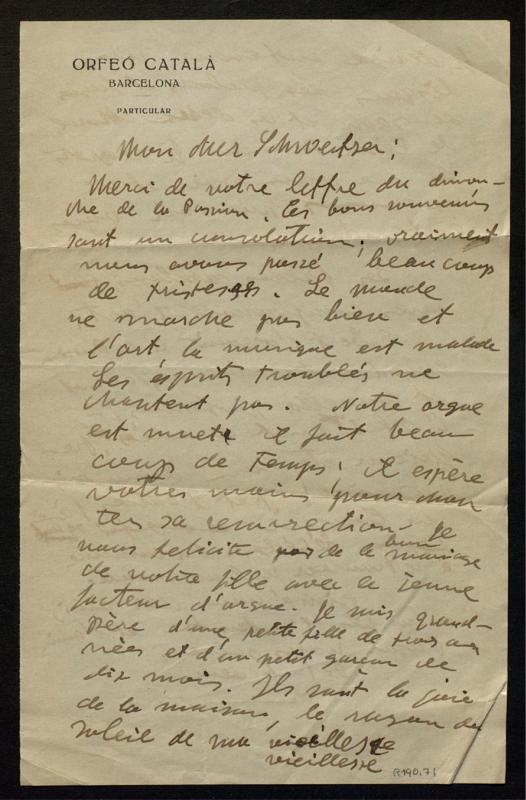 ORFEÓ CATALÀ
BARCELONA
PARTICULAR
Mon cher Schweitzer:
Merci de votre lettre du diman-
che de la Passion. Les bons souvenirs
sont un consolation; vraiment
nous avons passé beaucoup
de tristeses. Le monde
ne marche pas bien et
l'art, la musique est malade
Les ésprits troublés ne
chantent pas. Notre orgue
est muet il fait beau
coup de temps; il espère
votres mains pour chan
ter sa resurrection. Je
vous felicite de le bon mariage
de votre fille avec le jeune
facteur d'orgue. Je suis grand-
père d'une petite fille de trois an
nées et d'un petit garçon de
dix mois. Ils sont la joie
de la maison, le rayon du
soleil de ma vieillesse
vieillesse
R190.71